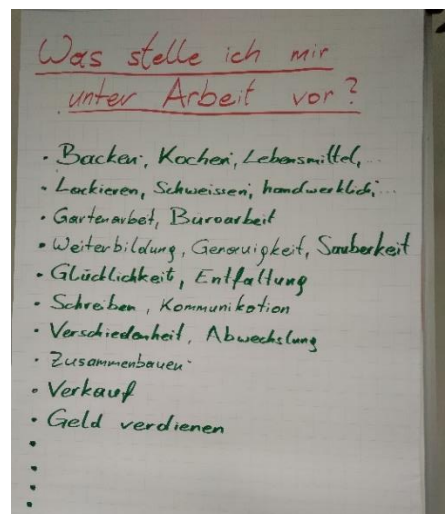 Was stelle ich mir
unter Arbeit vor?
• Backen, Kochen, Lebensmittel,...
• Lackieren, Schweissen, handwerklich,...
• Gartenarbeit, Büroarbeit
• Weiterbildung, Genauigkeit, Sauberkeit
• Glücklichkeit, Entfaltung
• Schreiben, Kommunikation
• Verschiedenheit, Abwechslung
• Zusammenbauen
• Verkauf
• Geld verdienen
•
•
•
•